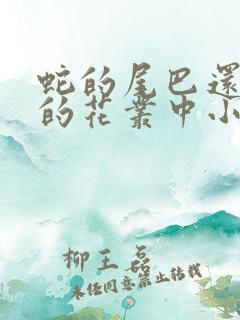 蛇的尾巴還
的花叢中小
柳王磊
未经同意禁止转载